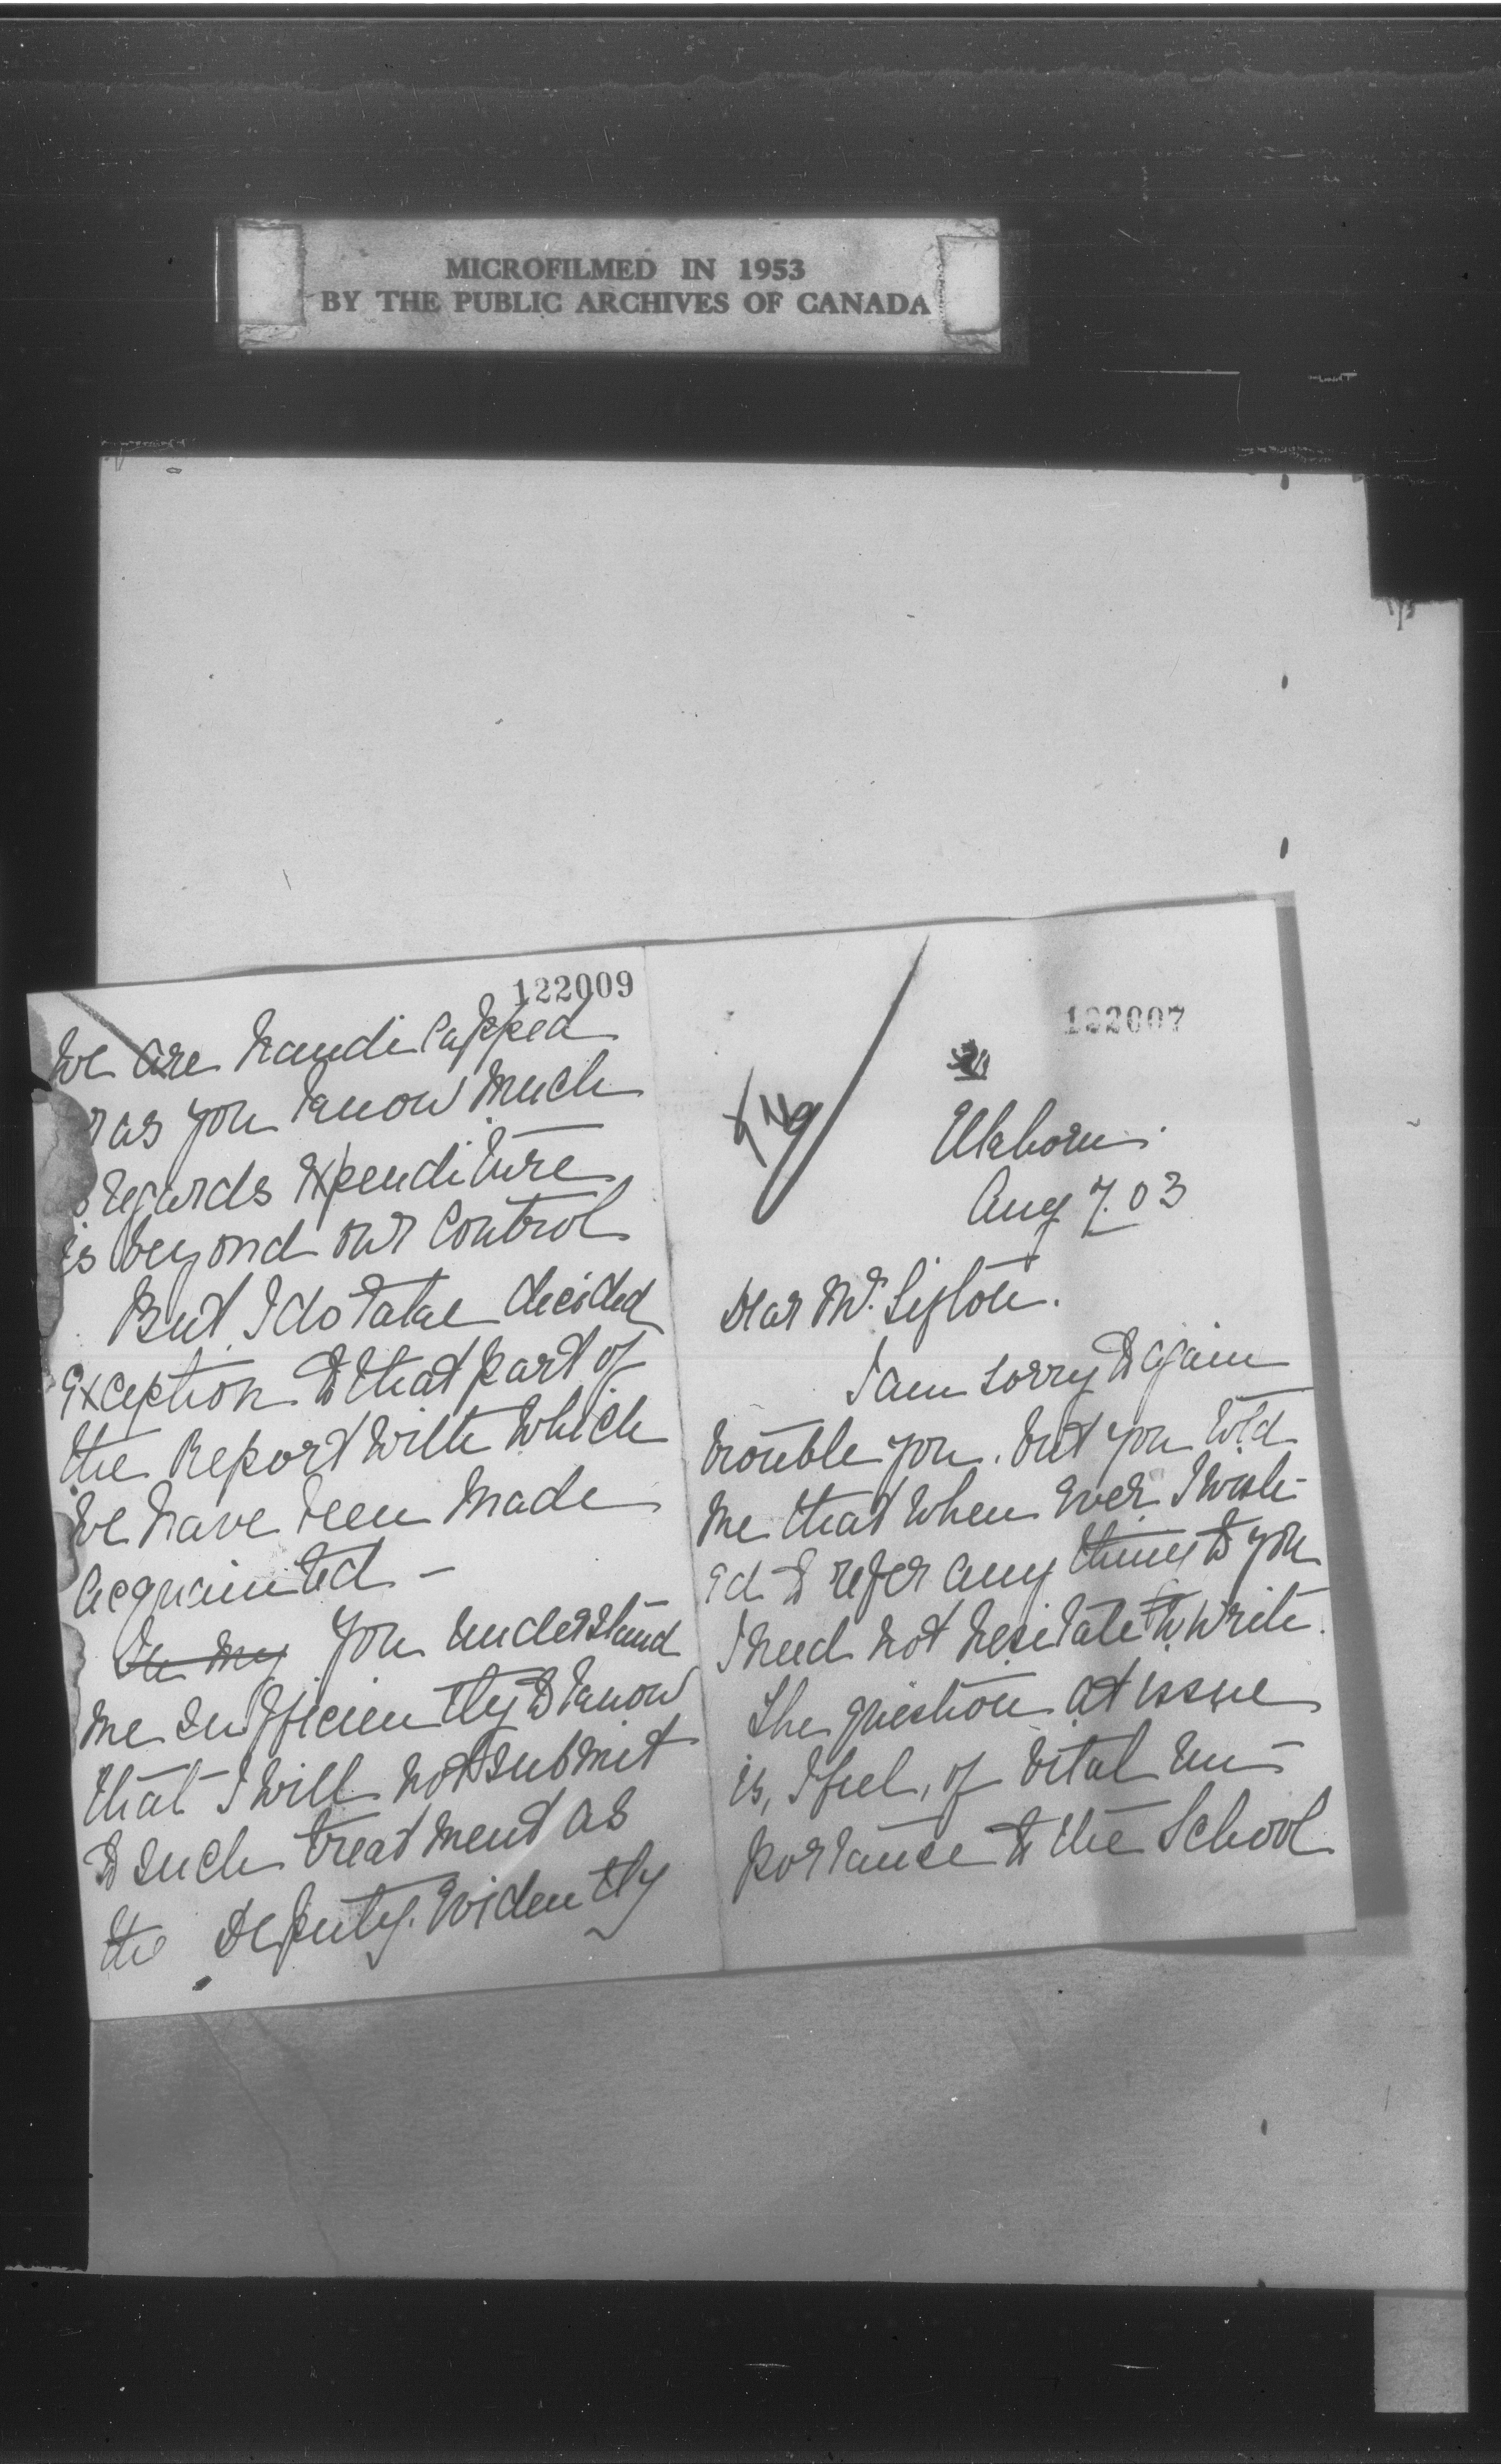 MICROFILMED IN 1953
BY THE PUBLIC ARCHIVES OF CANADA
122009
We are handicapped
as you know much
regards expenditure
is beyond our control
But I do take decided
exception to that part of
the Report with which
we have been made
acquainted –
You understand
me sufficiently to know
that I will not submit
to such treatment as
the Deputy evidently
122007
Elkhorn.
Aug 7. 03
Dear Mr. Sifton.
I am sorry to again
trouble you. but you told
me that when ever I wish-
ed to refer any thing to you
I need not hesitate to write.
The question at issue
is, I feel, of vital im-
portance to the School